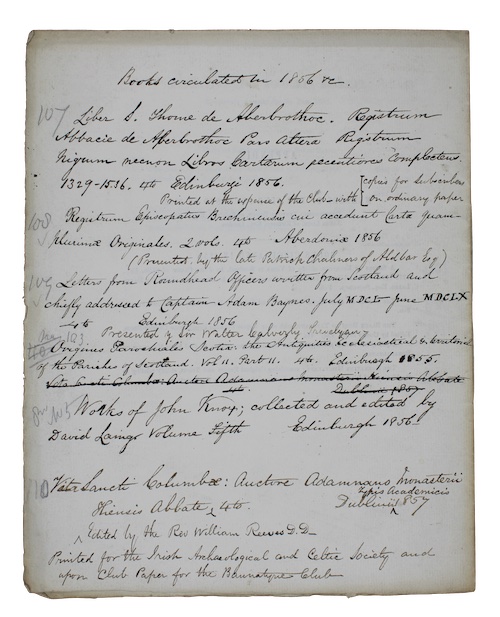 Books circulated in 1856 &c.
107 Liber S. Thome de Aberbrothoc. Registrum
Abbacie de Aberbrothoc Pars Altera Registrum
Nigrum necnon Libros Cartarum recentiores Complectens
1329-1536. 4to Edinburgi 1856. [copies for subscribers
Printed at the expense of the Club with on ordinary paper
108 Registrum Episcopatus Brechinensis cui accedunt Carta quam-
plurimæ Originales. 2 vols. 4to Aberdoniæ 1856
(Presented by the late Patrick Chalmers of Aldbar Esq)
109 Letters from Roundhead Officers written from Scotland and
chiefly addressed to Captain Adam Baynes. July MDCL - June MDCLX
4to Edinburgh 1856
Presented by Sir Walter Calverley Trevelyan
103
Origines Parochiales Scotiæ the Antiquities ecclesiastical & territorial
of the Parishes of Scotland. Vol 11. Part 11. 4to. Edinburgh 1855.
Vita Sancti Columbæ: Auctore Adamnano Monasterii Hiensis Abbate
4to. Dublinii 1857
8vo No 5 Works of John Knox; collected and edited by
David Laing Volume Fifth Edinburgh 1856
110 Vita Sancti Columbæ: Auctore Adamnano Monasterii
Typis Academicis
Hiensis Abbate 4to. Dublinii 1857
Edited by the Rev William Reeves D.D.
Printed for the Irish Archæological and Celtic Society and
upon Club Paper for the Bannatyne Club